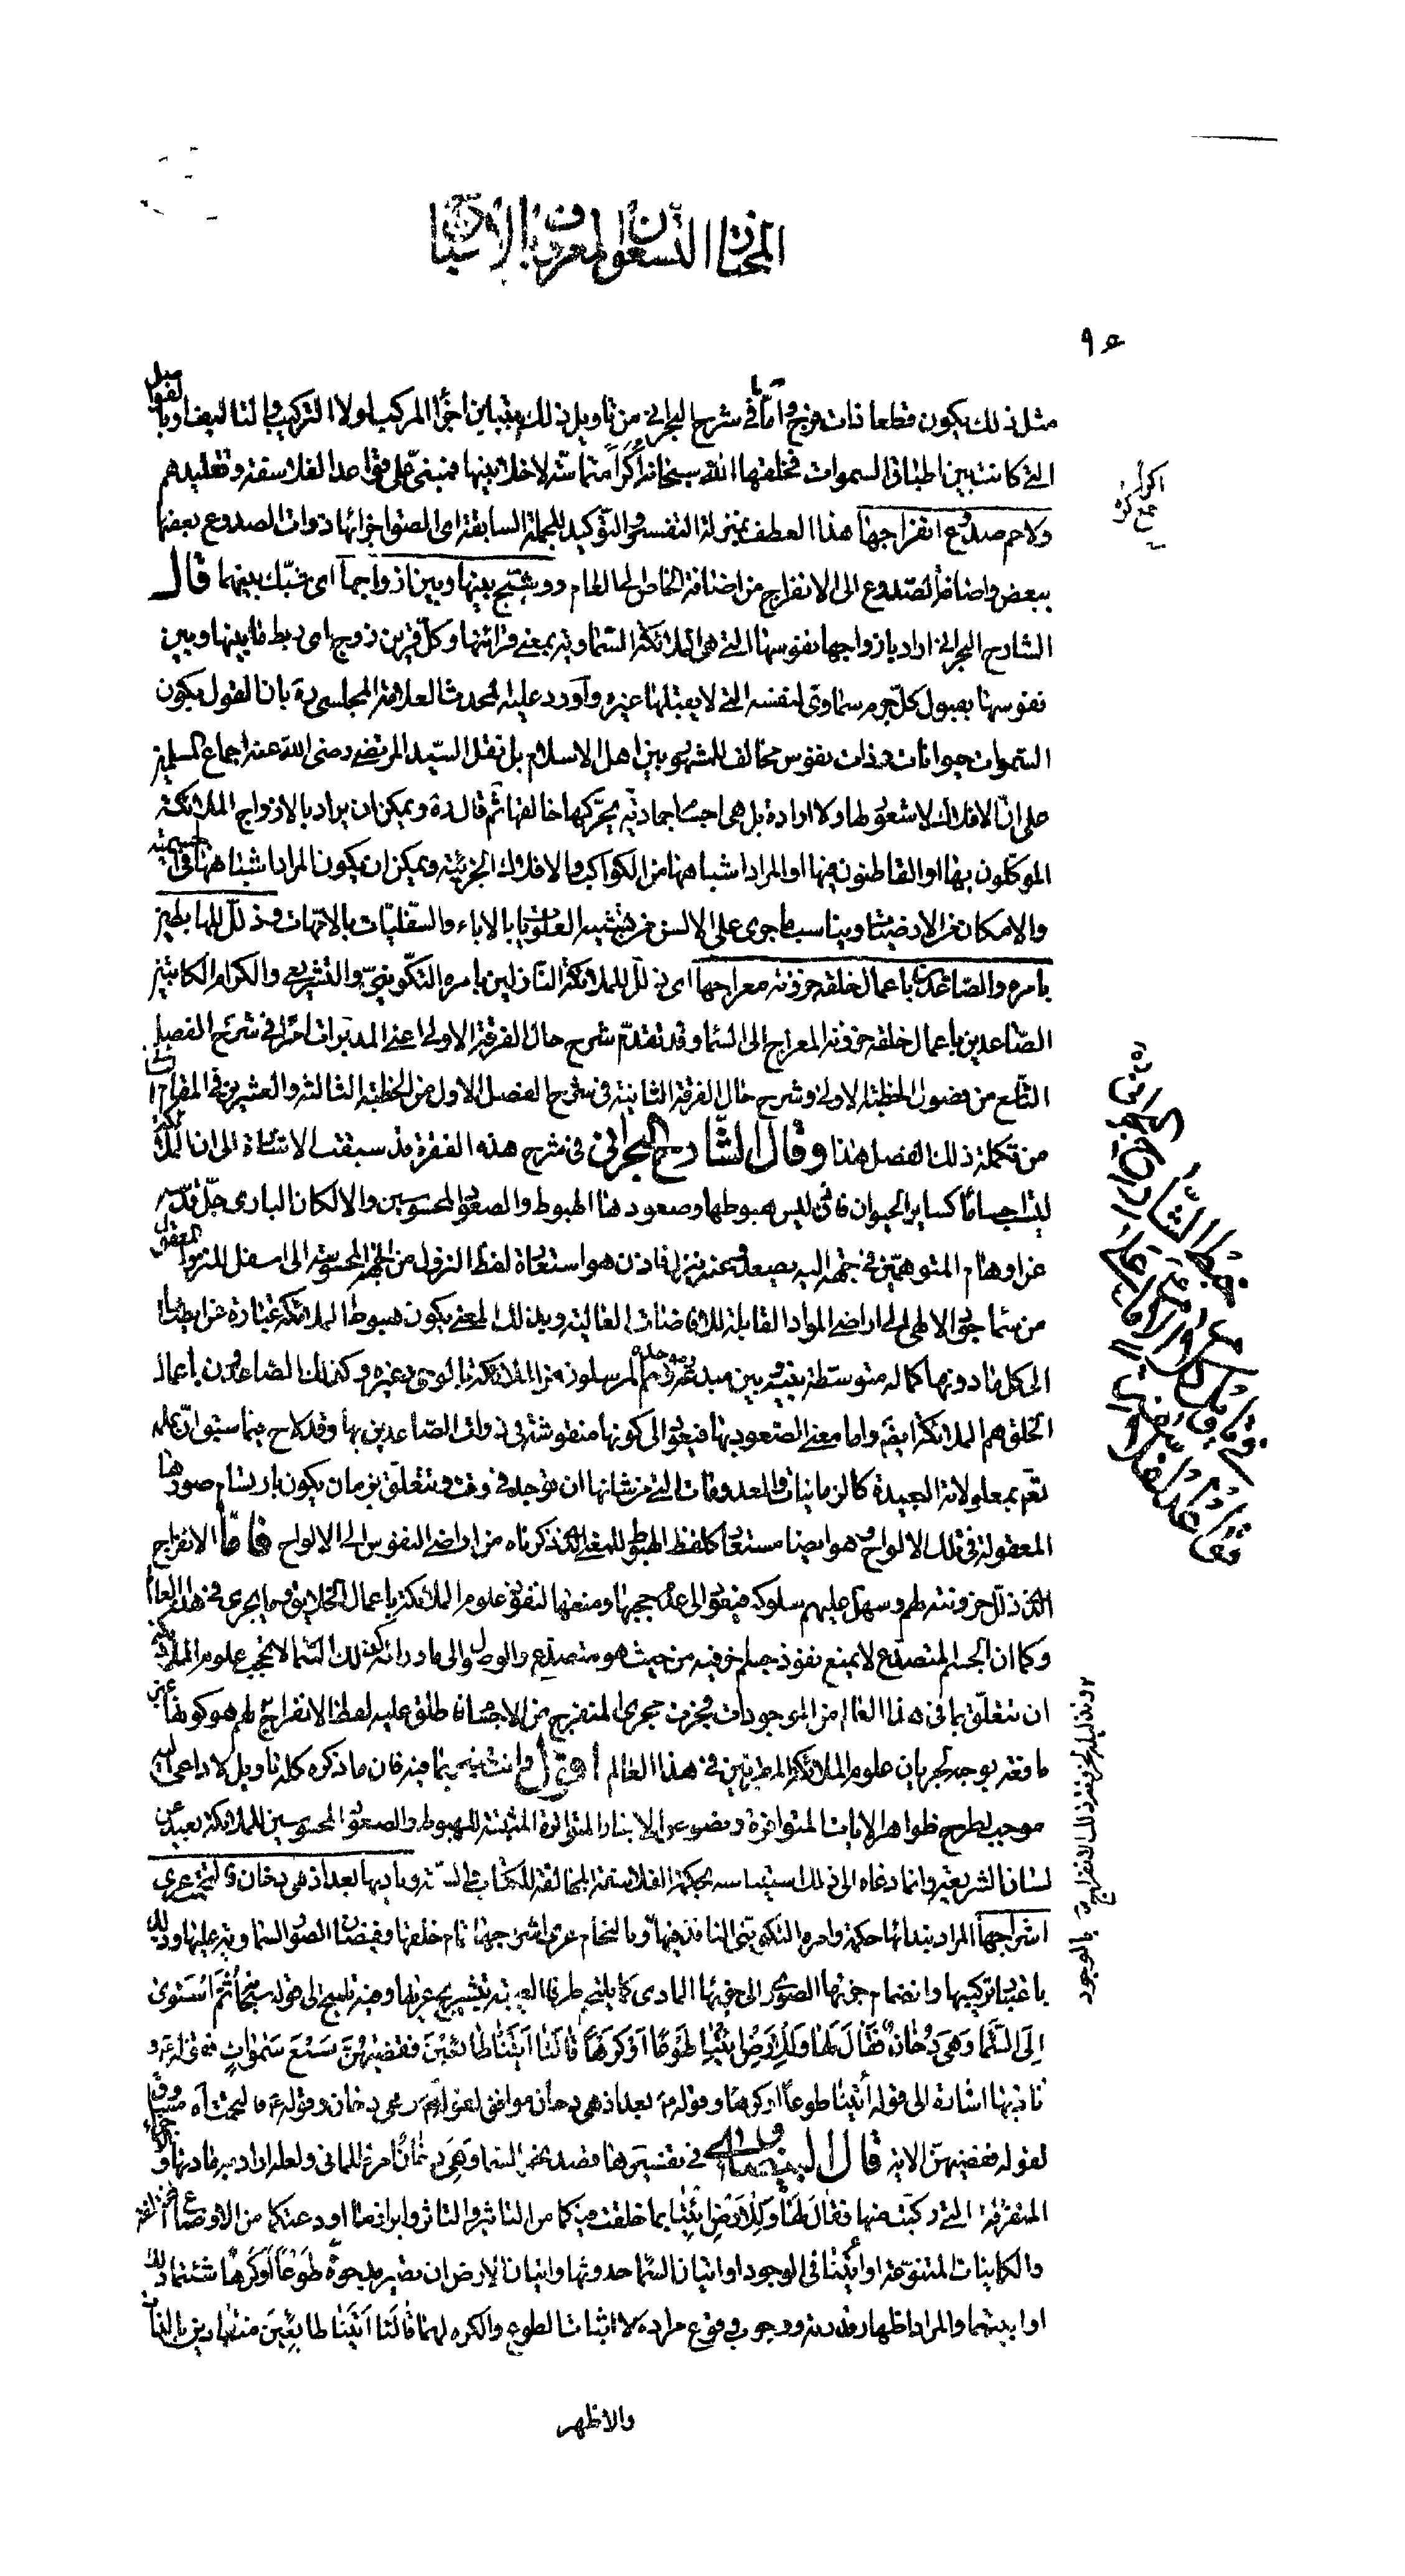 المختار التسعون المعروف بالاشباح
٩٥
مثل ذلك يكون قطعا ذات فرج و اما ما في شرح البحراني من تاويل ذلك بتباين اجزاء المركب لولا التركيب و التاليف او بالفواصل
التي كانت بين اطباق السموات فخلقها الله سبحانه اكرا متماسة لا خلا بينها فمبني على قواعد الفلاسفة و تقليدهم
ولاحم صدوع انفراجها هذا العطف بمنزلة التفسير و التوكيد للجملة السابقة اى الصق اجزائها ذوات الصدوع بعضها
ببعض و اضافة الصدوع الى الانفراج من اضافة الخاص الى العام و وشج بينها و بين ازواجها اى شبك بينهما قال
الشارح البحراني اراد بازواجها نفوسها التي هى الملائكة السماوية بمعنى قرائنها و كل قرين زوج اى ربط ما بينها و بين
نفوسها بقبول كل جرم سماوى لنفسه التي لا يقبلها غيره و اورد عليه المحدث العلامة المجلسى ره بان القول بكون
السموات حيوانات و ذوات نفوس مخالف للمشهور بين اهل الاسلام بل نقل السيد المرتضى رضى الله عنه اجماع المسلمين
على ان الافلاك لا شعور لها و لا ارادة بل هى اجسام جمادية يحركها خالقها ثم قال ره و يمكن ان يراد بالازواج الملائكة
الموكلون بها او القاطنون فيها او المراد اشباهها من الكواكب و الافلاك الجزئية و يمكن ان يكون المراد اشباهها في الجسمية
و الامكان من الارضيات و يناسب ما جرى على الالسن من تشبيه العلويات بالاباء و السفليات بالامهات و ذلل للهابطين
بامره و الصاعدين باعمال خلقه حزونة معراجها اى ذلل للملائكة النازلين بامره التكويني و التشريعي و الكرام الكاتبين
الصاعدين باعمال خلقه حزونة المعراج الى السماء و قد تقدم شرح حال الفرقة الاولى اعنى المدبرات امرا في شرح الفصل
التاسع من فصول الخطبة الاولى و شرح حال الفرقة الثانية في شرح الفصل الاول من الخطبة الثالثة و العشرين في المقام الثاني
من تكملة ذلك الفصل هذا و قال الشارح البحراني في شرح هذه الفقرة قد سبقت الاشارة الى ان الملائكة
ليست اجساما كسائر الحيوان فاذن ليس هبوطها و صعودها الهبوط و الصعود المحسوسين و الا لكان البارى جل قدسه
عن اوهام المتوهمين في جهة اليه يصعد و عنه ينزل فاذن هو استعارة لفظ النزول من الجهة المحسوسة الى اسفل للنزول المعقول
من سماء الجود الالهى الى اراضى المواد القابلة للافاضات العالية و بذلك المعنى يكون هبوط الملائكة عبارة عن ايصالها
الى كل ما دونها كماله متوسطة بينه و بين مبدعه و موجده و هم المرسلون من الملائكة بالوحى و غيره و كذلك الصاعدون باعمال
الخلق هم الملائكة ايضا و اما معنى الصعود بها فيعود الى كونها منقوشة في ذوات الصاعدين بها و قد لاح فيما سبق ان علمه
تعم بمعلولاته البعيدة كالزمانيات و المعدومات التي من شانها ان توجد في وقت و تتعلق بزمان يكون بارتسام صورها
المعقولة في تلك الالواح و هو ايضا مستعار كلفظ الهبوط للمعنى الذى ذكرناه من اراضى النفوس الى الالواح فاما الانفراج
الذى ذلل حزونته لهم و سهل عليهم سلوكه فيعود الى عدم حجبها و منعها لنفوذ علوم الملائكة باعمال الخلايق و ما يجرى في هذا العالم
و كما ان الجسم المتصدع لا يمنع نفوذ جسم اخر فيه من حيث هو متصدع و الوصول الى ما ورائه كذلك السماء لا تحجب علوم الملائكة
ان تتعلق بما في هذا العالم من الموجودات فجرت مجرى المنفرج من الاجسام فاطلق عليه لفظ الانفراج و هو كونها غير
مانعة بوجه لجريان علوم الملائكة المقربين في هذا العالم اقول و انت خبير بما فيه فان ما ذكره كله تاويل لا داعى اليه
موجب لطرح ظواهر الايات المتوافرة و نصوص الاخبار المتواترة المثبتة للهبوط و الصعود المحسوسين للملائكة بعيد عن
لسان الشريعة و انما دعاه الى ذلك استيناسه بحكمة الفلاسفة المخالفة للكتاب و السنة و ناديها بعد اذ هى دخان فالتحمت عرى
اشراجها المراد بندائها حكمه و امره التكويني النافذ فيها و بالتحام عرى اشراجها تمام خلقها و فيضان الصور السماوية عليها و ذلك
باعتبار تركيبها و انضمام جزئها الصورى الى جزئها المادى كما يلتئم طرفا العيبة بتشريج عريها و فيه تلميح الى قوله سبحانه ثم استوى
الى السماء و هى دخان فقال لها و للارض ائتيا طوعا او كرها قالتا اتينا طائعين فقضيهن سبع سموات ففي قوله ع و
ناديها اشارة الى قوله ائتيا طوعا او كرها و قوله ع بعد اذ هى دخان موافق لقوله و هى دخان و قوله ع فالتحمت اه مساوق
لقوله فقضيهن الاية قال البيضاوي في تفسيرها قصد نحو السماء و هى دخان امر ظلماني و لعله اراد به مادتها و الاجزاء
المتفرقة التي ركبت منها فقال لها و للارض ائتيا بما خلقت فيكما من التاثير و التاثر و ابراز ما اودعتكما من الاوضاع المختلفة
و الكاينات المتنوعة او ائتيا في الوجود او اتيان السماء حدوثها و اتيان الارض ان تصير مدحوة طوعا او كرها شئتما ذلك
او ابيتما و المراد اظهار قدرته و وجوب وقوع مراده لا اثبات الطوع و الكره لهما قالتا اتينا طائعين منقادين بالذات
والاظهر
اكرا
جمع كرة
ره
خبط الشارح البحراني